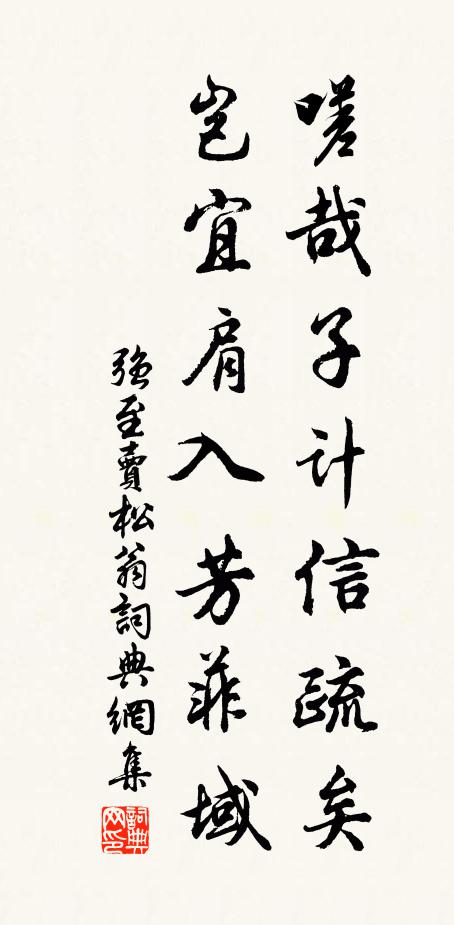 嗟哉子计信疏矣
岂宜肩入芳菲域
强至賣松翁詞典網集
詞典网印